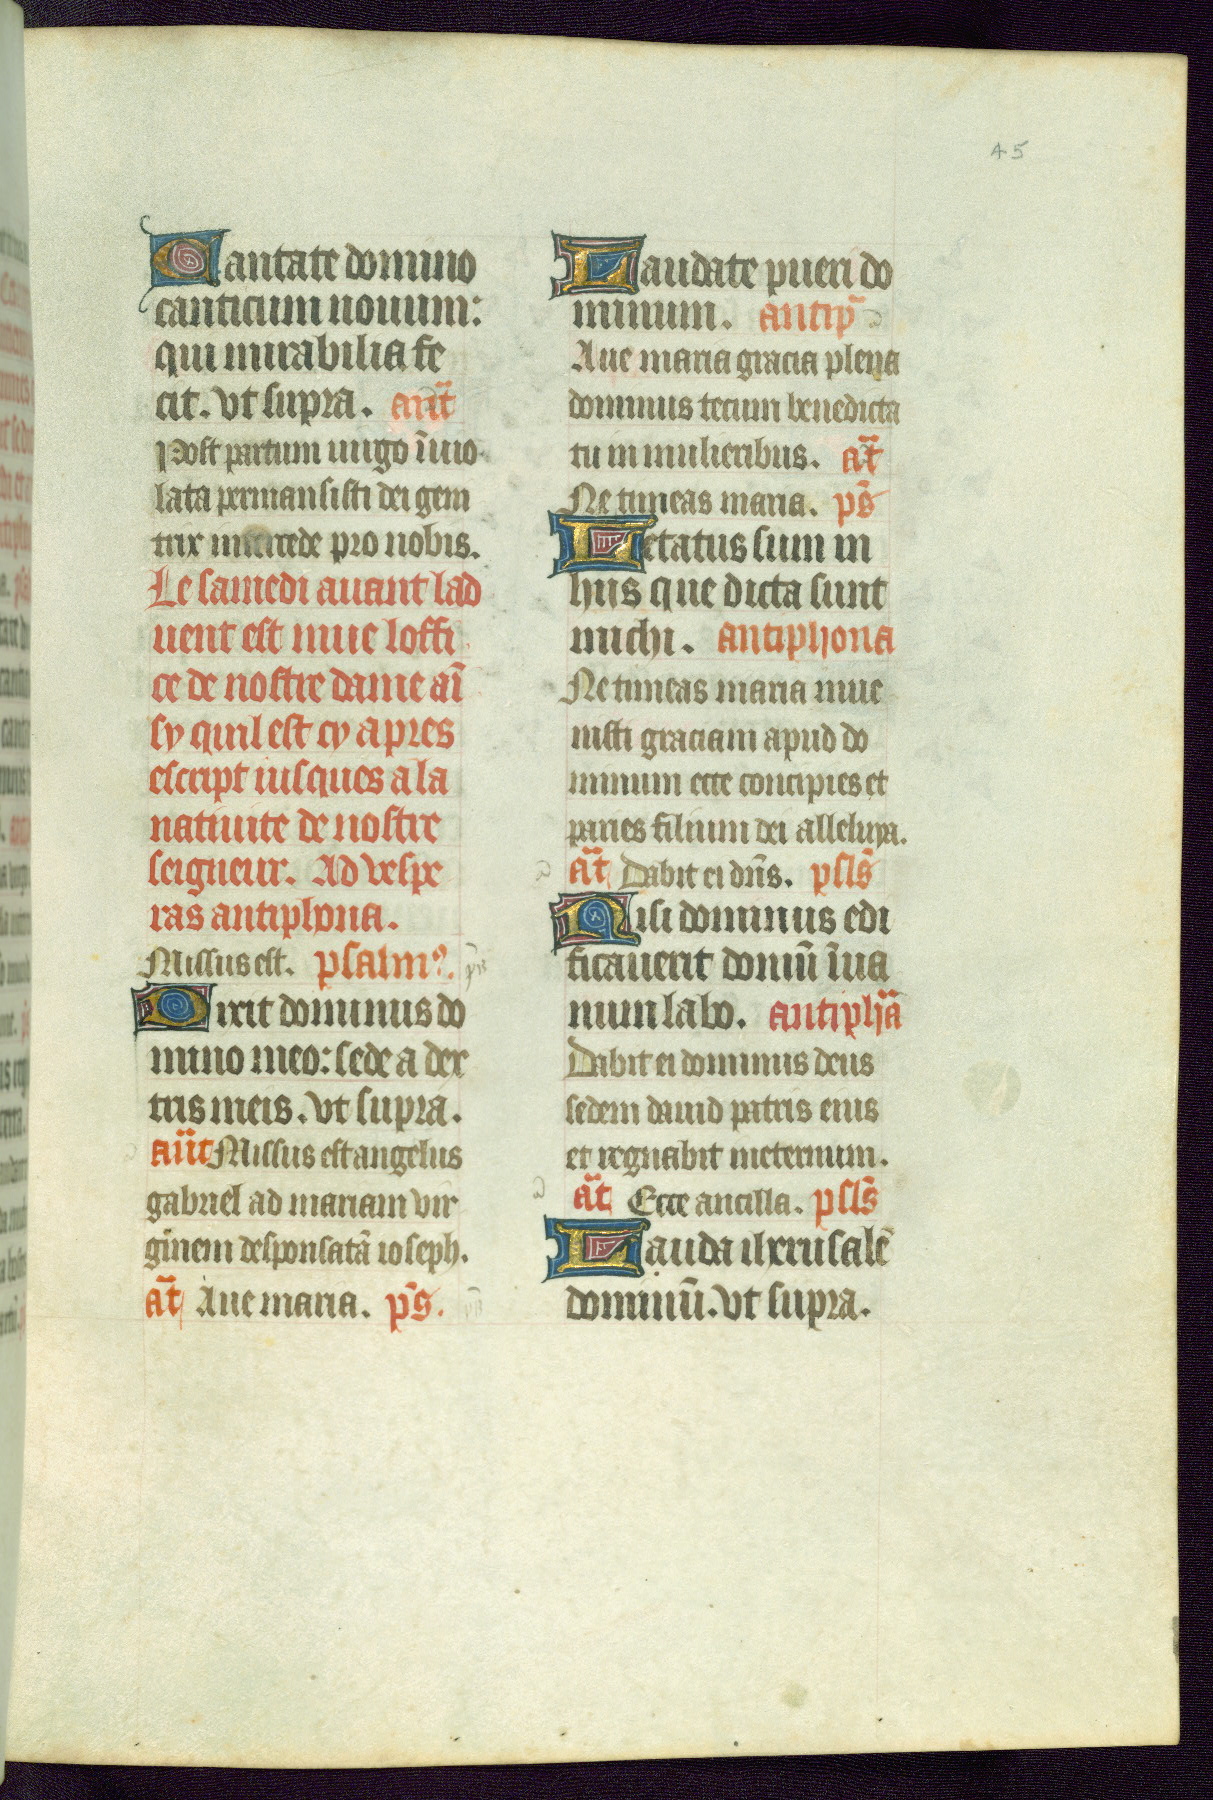 45
Cantate domino
canticum nouum:
qui mirabilia fe
cit. vt supra. ant̄
Post partum uirgo īuio
lata permansisti dei geni
trix intercede pro nobis.
Le samedi auant lad
uent est mue loffi
ce de nostre dame aī
sy quil est cy apres
escript iusques a la
natiuite de nostre
seigneur. Ad vespe
ras antiphona.
Missus est. psalmꝰ.
Dixit dominus do
mino meo: sede a dex
tris meis. vt supra.
ant̄ Missus est angelus
gabriel ad mariam vir
ginem desponsatā ioseph.
at̄ Aue maria. ps̄.
Laudate pueri do
minum. antip̄
Aue maria gracia plena
dominus tecum benedicta
tu in mulieribus. at̄
Ne timeas maria. ps̄
Letatus sum in
hiis que dicta sunt
michi. antiphona
Ne timeas maria inue
nisti graciam apud do
minum ecce concipies et
paries filium dei alleluya.
at̄ Dabit ei dn̄s. psls̄
Nisi dominus edi
ficauerit domū īua
num labo. antiphā
Dabit ei dominus deus
sedem dauid patris eius
et regnabit ineternum.
at̄ Ecce ancilla. psls̄
Lauda iherusalē
dominū. vt supra.